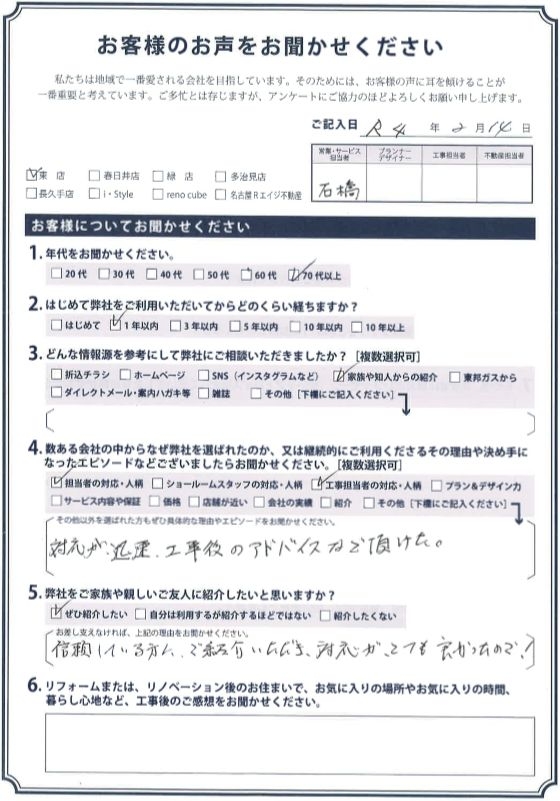 お客様のお声をお聞かせください
私たちは地域で一番愛される会社を目指しています。そのためには、お客様の声に耳を傾けることが
一番重要と考えています。ご多忙とは存じますが、アンケートにご協力のほどよろしくお願い申し上げます。
ご記入日 R4 年 2 月 14 日
営業・サービス担当者 プランナーデザイナー 工事担当者 不動産担当者
石橋
☑東 店 □春日井店 □緑 店 □多治見店
□長久手店 □i・Style □reno cube □名古屋Rエイジ不動産
お客様についてお聞かせください
1. 年代をお聞かせください。
□20代 □30代 □40代 □50代 □60代 ☑70代以上
2. はじめて弊社をご利用いただいてからどのくらい経ちますか？
□はじめて ☑1年以内 □3年以内 □5年以内 □10年以内 □10年以上
3. どんな情報源を参考にして弊社にご相談いただきましたか？［複数選択可］
□折込チラシ □ホームページ □SNS（インスタグラムなど） ☑家族や知人からの紹介 □東邦ガスから
□ダイレクトメール・案内ハガキ等 □雑誌 □その他［下欄にご記入ください］
4. 数ある会社の中からなぜ弊社を選ばれたのか、又は継続的にご利用くださるその理由や決め手に
なったエピソードなどございましたらお聞かせください。［複数選択可］
☑担当者の対応・人柄 □ショールームスタッフの対応・人柄 ☑工事担当者の対応・人柄 □プラン＆デザイン力
□サービス内容や保証 □価格 □店舗が近い □会社の実績 □紹介 □その他［下欄にご記入ください］
その他以外を選ばれた方もぜひ具体的な理由やエピソードをお聞かせください。
対応が迅速、工事後のアドバイスなど頂けた。
5. 弊社をご家族や親しいご友人に紹介したいと思いますか？
☑ぜひ紹介したい □自分は利用するが紹介するほどではない □紹介したくない
お差し支えなければ、上記の理由をお聞かせください。
信頼している方に、ご紹介いただき、対応がとても良かったので！
6. リフォームまたは、リノベーション後のお住まいで、お気に入りの場所やお気に入りの時間、
暮らし心地など、工事後のご感想をお聞かせください。